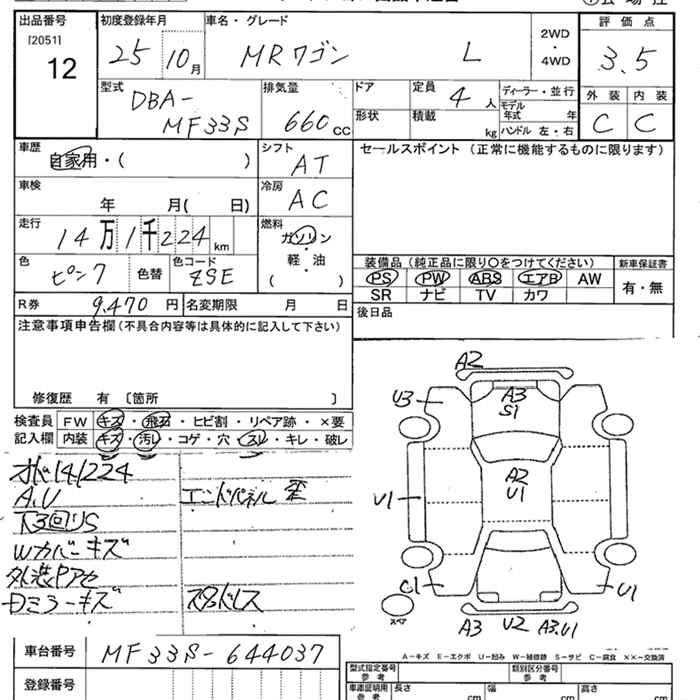 出品番号 初度登録年月 車名・グレード 評価点
[2051] 12 25 10月 MRワゴン L 2WD ・ 4WD 3.5
外装 内装
C C
型式 DBA-MF33S 排気量 660cc ドア 形状 定員 4人 積載 kg ディーラー・並行 モデル年式 年 ハンドル 左・右
車歴 自家用・( ) シフト AT セールスポイント (正常に機能するものに限ります)
車検 年 月( 日) 冷房 AC
走行 14万1千224km 燃料 ガソリン・軽・油 ( )
色 ピンク 色替 色コード ZSE
装備品 (純正品に限り〇をつけてください) 新車保証書
PS PW ABS エアB AW 有・無
SR ナビ TV カワ
R券 9,470円 名変期限 月 日 後日品
注意事項申告欄(不具合内容等は具体的に記入して下さい)
修復歴 有 〔箇所 〕
検査員 FW キズ・飛石・ヒビ割・リペア跡・×要
記入欄 内装 キズ・汚レ・コゲ・穴・スレ・キレ・破レ
オド141224
A.U エンドパネル歪
下3回リS
Wカバーキズ
外装Pアセ
Dミラーキズ スタッドレス
A2
U3 A3 S1
A2 U1
U1
C1 U1
スペア A3 U2 A3.U1
車台番号 MF33S-644037
登録番号
A-キズ E-エクボ U-凹み W-補修跡 S-サビ C-腐食 ××-交換済
型式指定番号 参考 類別区分番号 参考
車庫証明用 参考 長さ cm 幅 cm 高さ cm